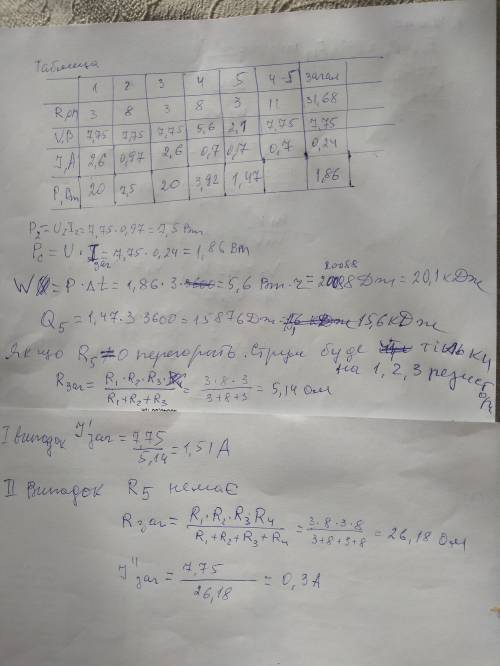 Таблица
1 2 3 4 5 4-5 загал
R,Om 3 8 3 8 3 11 31,68
V,B 7,75 7,75 7,75 5,6 2,1 7,75 7,75
J,A 2,6 0,97 2,6 0,7 0,7 0,7 0,24
P,Bm 20 7,5 20 3,92 1,47 1,86
P₂=U₂I₂=7,75·0,97=7,5 Вт
Pc=U·Iзаг=7,75·0,24=1,86 Вт
W=P·Δt=1,86·3=5,6 Вт·ч=20088 Дж=20,1 кДж
Q₅=1,47·3·3600=15876Дж=15,6кДж
Якщо R₅=0 перегорить. Струм буде тільки
на 1,2,3 резист
Rзаг=R₁·R₂·R₃/R₁+R₂+R₃=3·8·3/3+8+3=5,14 Ом
I випадок I'заг=7,75/5,14=1,51А
II Випадок R5 немає
Rзаг=R₁·R₂·R₃R₄/R₁+R₂+R₃+R₄=3·8·3·8/3+8+3+8=26,18 Ом
I''заг=7,75/26,18=0,3А